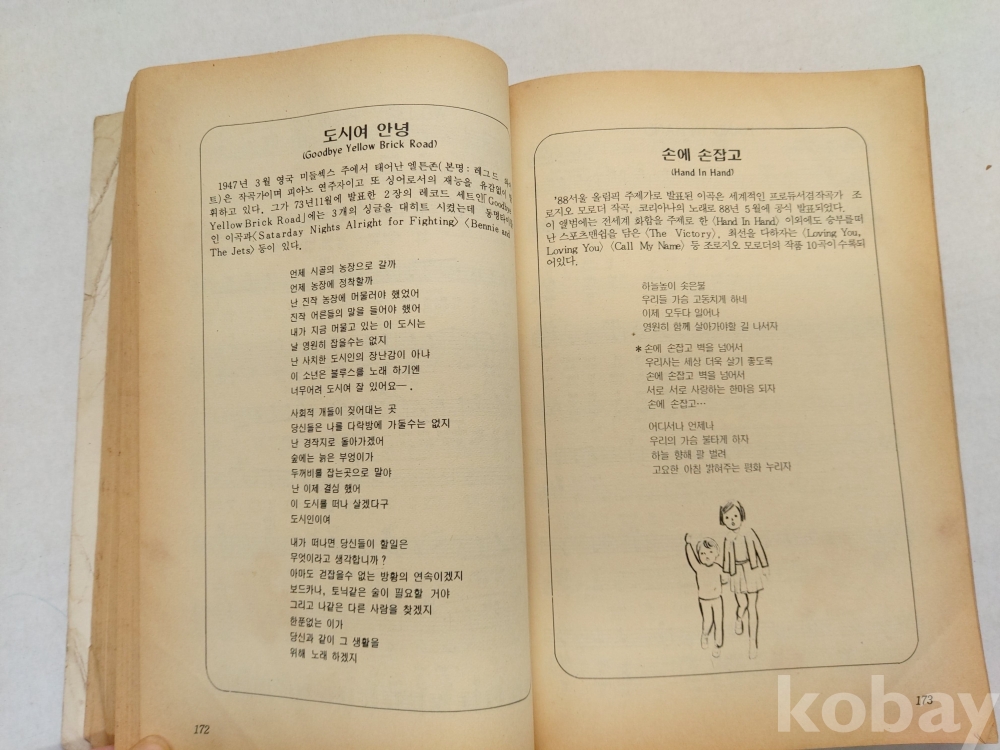 도시여 안녕
(Goodbye Yellow Brick Road)
1947년 3월 영국 미들섹스 주에서 태어난 엘튼존(본명 : 레그드
트)은 작곡가이며 피아노 연주자이고 또 싱어로서의 재능을 유감없이
휘하고 있다. 그가 73년11월에 발표한 2장의 레코드 세트인「Goodbye
Yellow Brick Road」에는 3개의 싱글을 대히트 시켰는데 동명타이틀
인 이곡과〈Satarday Nights Alright for Fighting〉〈Bennie and
The Jets〉등이 있다.
언제 시골의 농장으로 갈까
언제 농장에 정착할까
난 진작 농장에 머물러야 했었어
진작 어른들의 말을 들어야 했어
내가 지금 머물고 있는 이 도시는
날 영원히 잡을수는 없지
난 사치한 도시인의 장난감이 아냐
이 소년은 블루스를 노래 하기엔
너무어려 도시여 잘 있어요—.
사회적 개들이 짖어대는 곳
당신들은 나를 다락방에 가둘수는 없지
난 경작지로 돌아가겠어
숲에는 늙은 부엉이가
두꺼비를 잡는곳으로 말야
난 이제 결심 했어
이 도시를 떠나 살겠다구
도시인이여
내가 떠나면 당신들이 할일은
무엇이라고 생각합니까?
아마도 걷잡을수 없는 방황의 연속이겠지
보드카나, 토닉같은 술이 필요할 거야
그리고 나같은 다른 사람을 찾겠지
한푼없는 이가
당신과 같이 그 생활을
위해 노래 하겠지
172
손에 손잡고
(Hand In Hand)
'88서울 올림픽 주제가로 발표된 이곡은 세계적인 프로듀서겸작곡가 조
로지오 모로더 작곡, 코리아나의 노래로 88년 5월에 공식 발표되었다.
이 앨범에는 전세계 화합을 주제로 한〈Hand In Hand〉이외에도 승부를떠
난 스포츠맨쉽을 담은〈The Victory〉, 최선을 다하자는〈Loving You,
Loving You〉〈Call My Name〉등 조로지오 모로더의 작품 10곡이 수록되
어있다.
하늘높이 솟은불
우리들 가슴 고동치게 하네
이제 모두다 일어나
영원히 함께 살아가야할 길 나서자
*손에 손잡고 벽을 넘어서
우리사는 세상 더욱 살기 좋도록
손에 손잡고 벽을 넘어서
서로 서로 사랑하는 한마음 되자
손에 손잡고…
어디서나 언제나
우리의 가슴 불타게 하자
하늘 향해 팔 벌려
고요한 아침 밝혀주는 평화 누리자
173
kobay